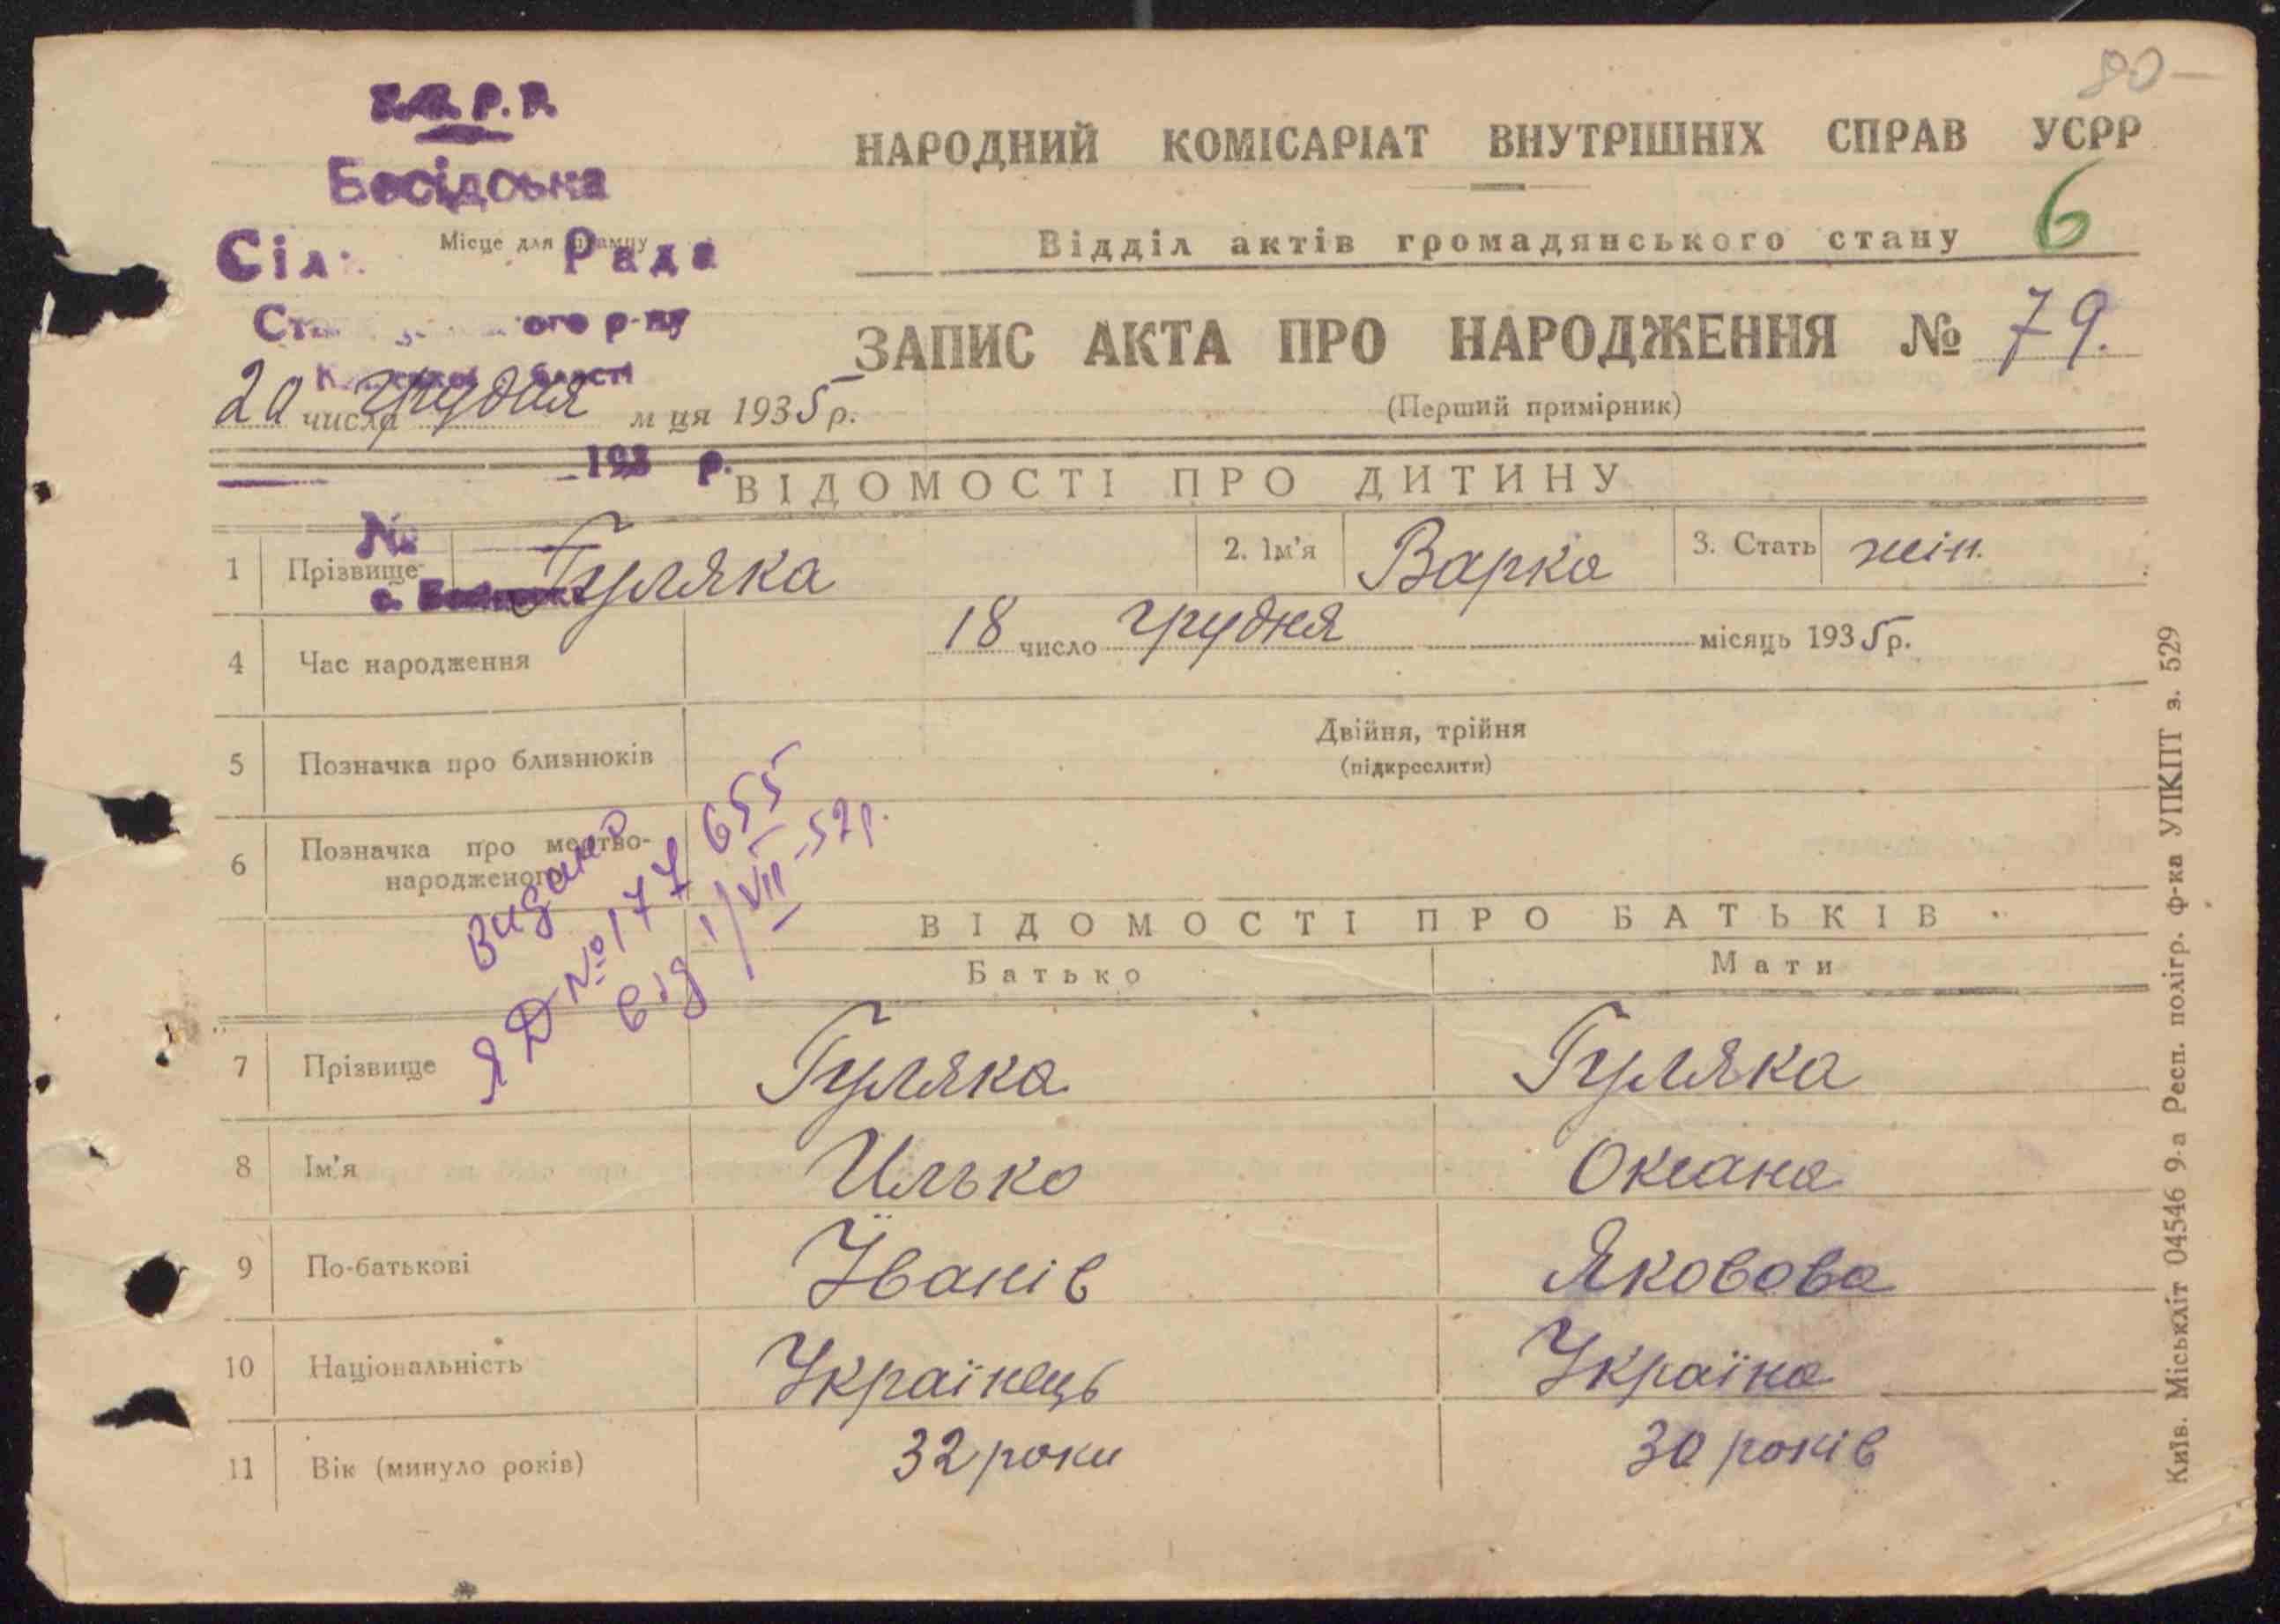 80
Р.Р.
НАРОДНИЙ КОМІСАРІАТ ВНУТРІШНІХ СПРАВ УСРР
Бесідська
6
Сіл. Рада
Місце для штампу
Відділ актів громадянського стану
ого р-ну
області
ЗАПИС АКТА ПРО НАРОДЖЕННЯ № 79.
20 число грудня м ця 1935 р.
(Перший примірник)
193 р.
ВІДОМОСТІ ПРО ДИТИНУ
№
с.
1 Прізвище Гуляка 2. Ім'я Варка 3. Стать жін.
4 Час народження 18 число грудня місяць 1935 р.
5 Позначка про близнюків Двійня, трійня
(підкреслити)
6 Позначка про мертво-
народженого
Видано
ЯД № 177655
від 1/VII-52р.
ВІДОМОСТІ ПРО БАТЬКІВ
Батько Мати
7 Прізвище Гуляка Гуляка
8 Ім'я Илько Оксана
9 По-батькові Їванів Яковова
10 Національність Українець Україна
11 Вік (минуло років) 32 роки 30 років
Київ. Міськліт 04546 9-а Респ. полігр. ф-ка УПКПТ з. 529